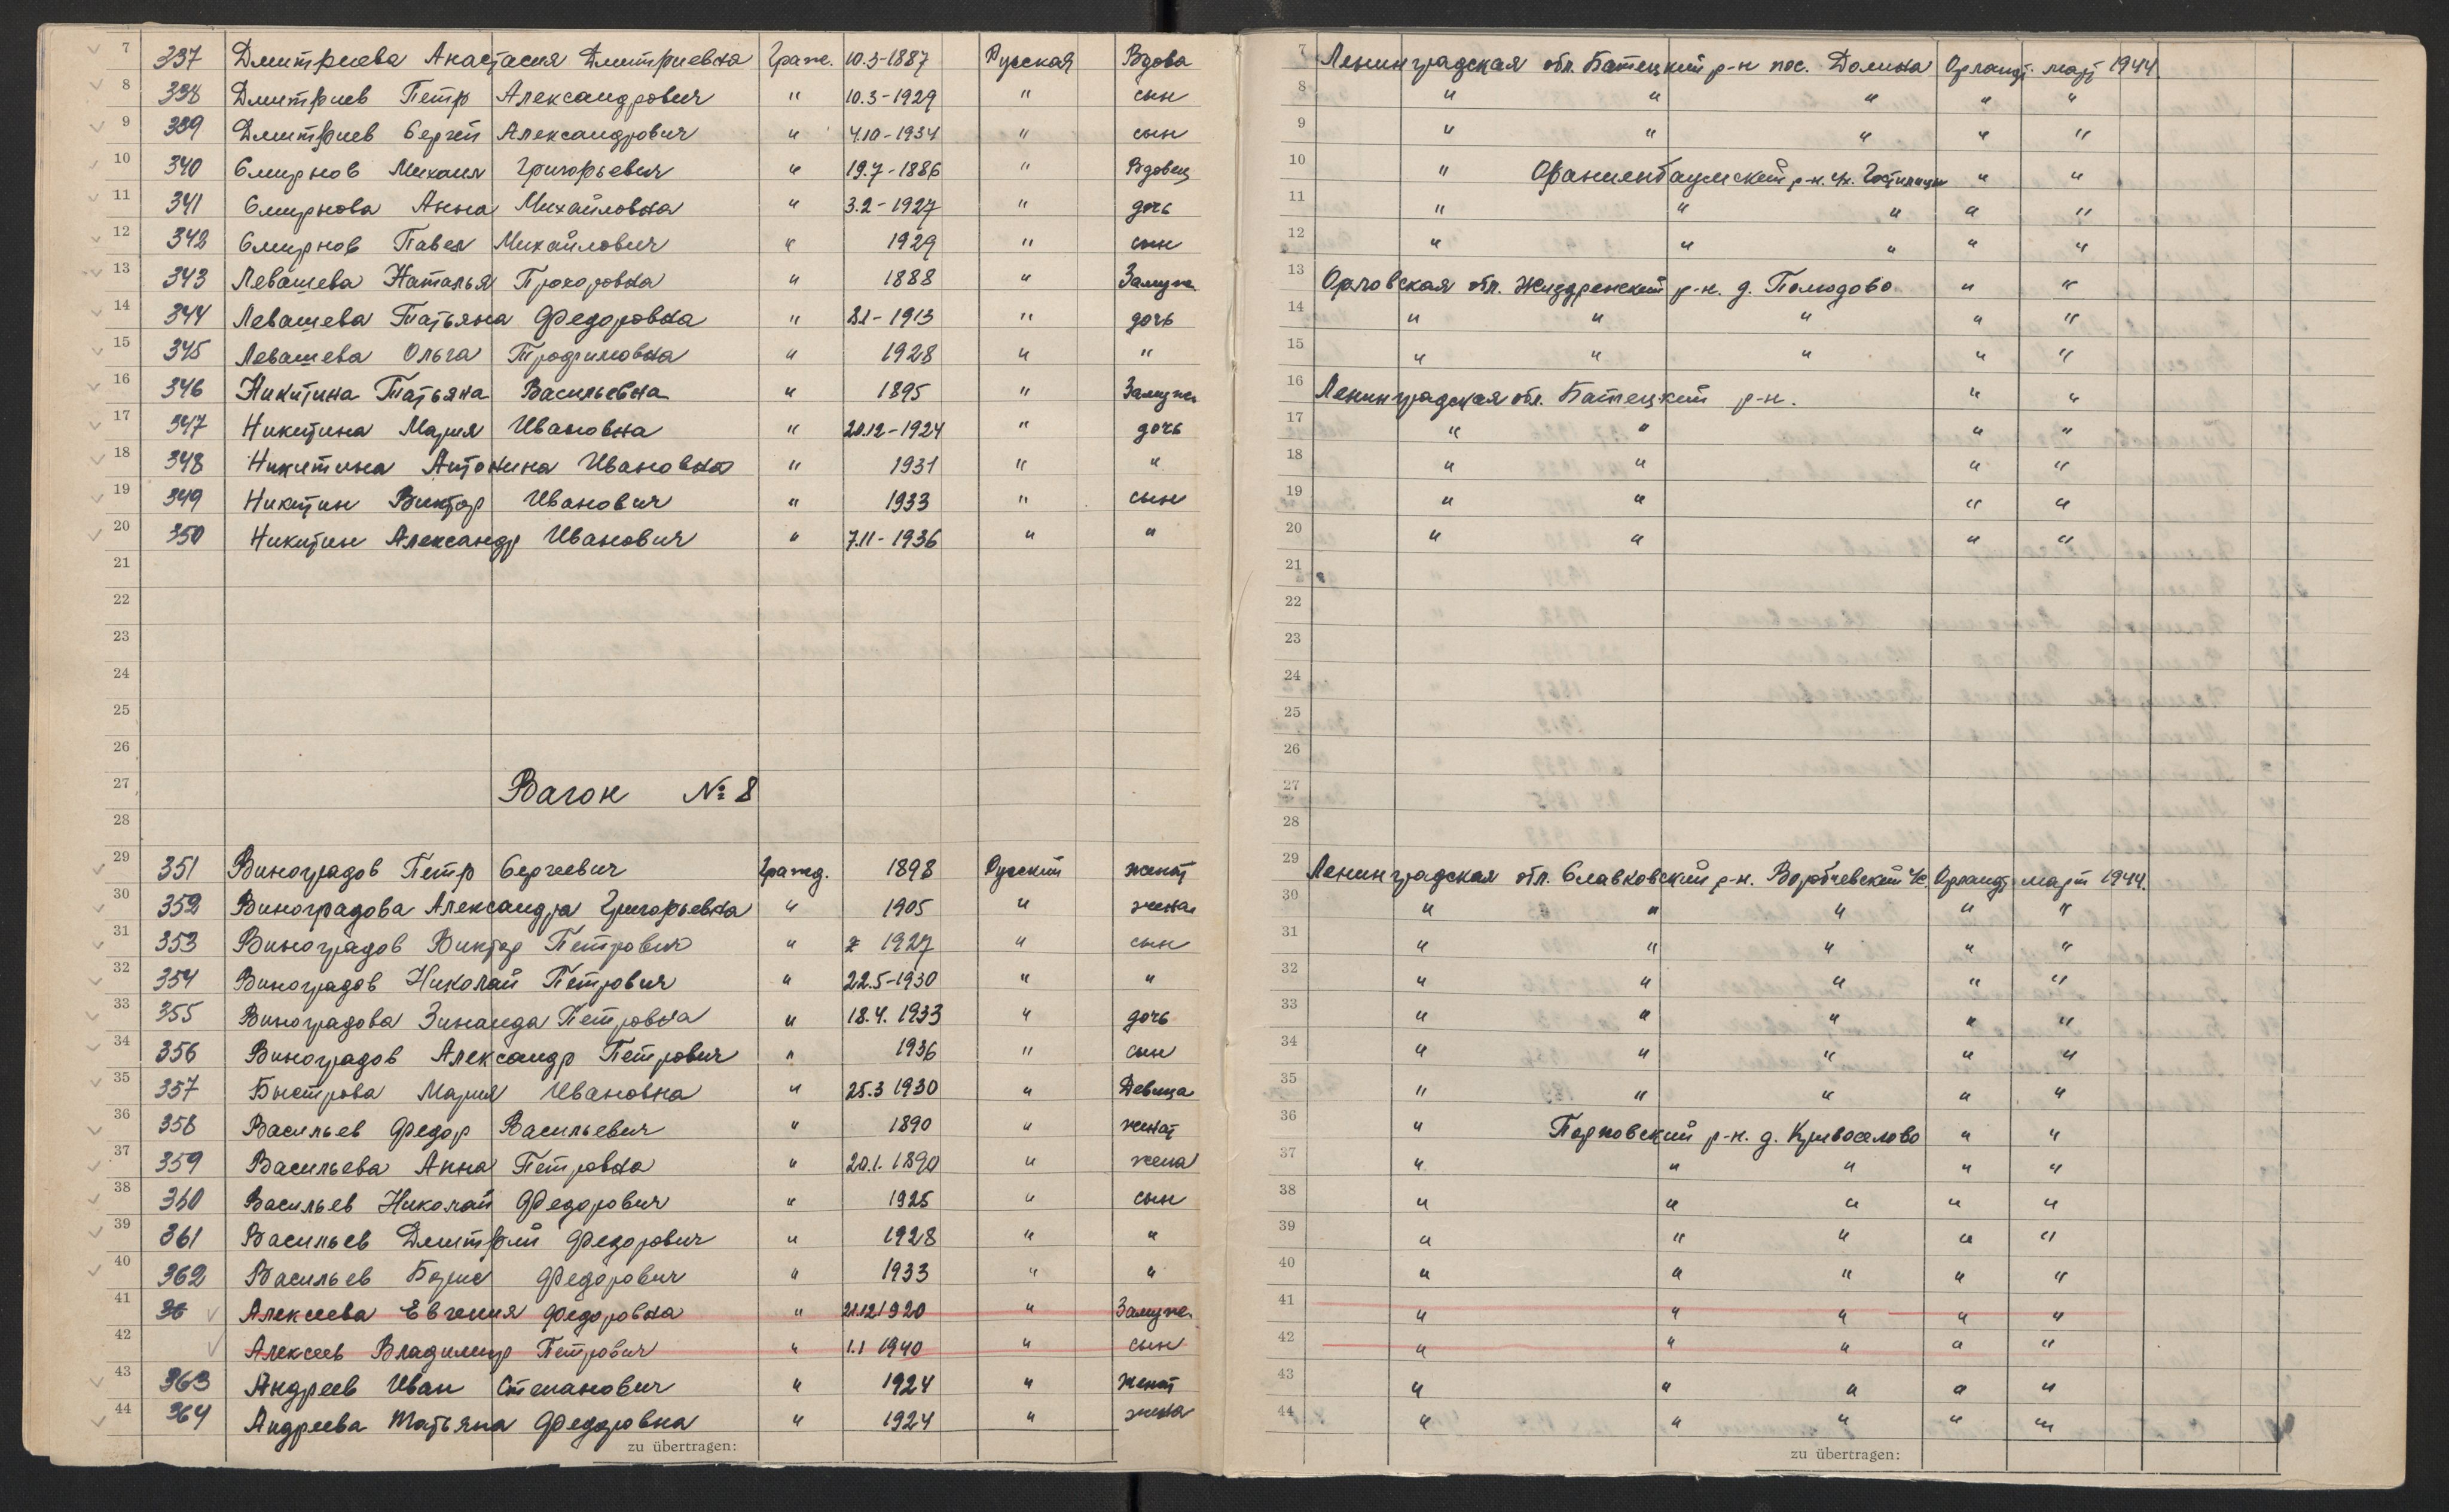 7 337 Дмитриева Анастасия Дмитриевна Граж. 10.3-1887 Русская Вдова
8 338 Дмитриев Петр Александрович " 10.3-1929 " сын
9 339 Дмитриев Сергей Александрович " 4.10-1934 " сын
10 340 Смирнов Михаил Григорьевич " 19.7-1886 " Вдовец
11 341 Смирнова Анна Михайловна " 3.2-1927 " дочь
12 342 Смирнов Павел Михайлович " 1929 " сын
13 343 Левашева Наталья Прохоровна " 1888 " Замуж.
14 344 Левашева Татьяна Федоровна " 21-1913 " дочь
15 345 Левашева Ольга Трофимовна " 1928 " "
16 346 Никитина Татьяна Васильевна " 1895 " Замуж.
17 347 Никитина Мария Ивановна " 20.12-1924 " дочь
18 348 Никитина Антонина Ивановна " 1931 " "
19 349 Никитин Виктор Иванович " 1933 " сын
20 350 Никитин Александр Иванович " 7.11-1936 " "
21
22
23
24
25
26
27 Вагон № 8
28
29 351 Виноградов Петр Сергеевич Гражд. 1898 Русский женат
30 352 Виноградова Александра Григорьевна " 1905 " жена
31 353 Виноградов Виктор Петрович " 1927 " сын
32 354 Виноградов Николай Петрович " 22.5-1930 " "
33 355 Виноградова Зинаида Петровна " 18.4.1933 " дочь
34 356 Виноградов Александр Петрович " 1936 " сын
35 357 Быстрова Мария Ивановна " 25.3 1930 " Девица
36 358 Васильев Федор Васильевич " 1890 " женат
37 359 Васильева Анна Петровна " 20.1.1890 " жена
38 360 Васильев Николай Федорович " 1925 " сын
39 361 Васильев Дмитрий Федорович " 1928 " "
40 362 Васильев Борис Федорович " 1933 " "
41 36 Алексеева Евгения Федоровна " 21.12.1920 " Замуж.
42 Алексеев Владимир Петрович " 1.1 1940 " сын
43 363 Андреев Иван Степанович " 1924 " женат
44 364 Андреева Татьяна Федоровна " 1924 " жена
zu übertragen:
7 Ленинградская обл. Батецкий р-н пос. Долина Орланд. март 1944
8 " " " " "
9 " " " " "
10 " Ораниенбаумский р-н. Гостилицы " "
11 " " " " "
12 " " " " "
13 Орловская обл. Жиздренский р-н. д. Полюдово " "
14 " " " " "
15 " " " " "
16 Ленинградская обл. Батецкий р-н. " "
17 " " " "
18 " " " "
19 " " " "
20 " " " "
21
22
23
24
25
26
27
28
29 Ленинградская обл. Славковский р-н. Воробьевский Орланд. март 1944.
30 " " " " "
31 " " " " "
32 " " " " "
33 " " " " "
34 " " " " "
35 " " " " "
36 " Порховский р-н. д. Кривоселово " "
37 " " " " "
38 " " " " "
39 " " " " "
40 " " " " "
41 " " " " "
42 " " " " "
43 " " " " "
44 " " " " "
zu übertragen: